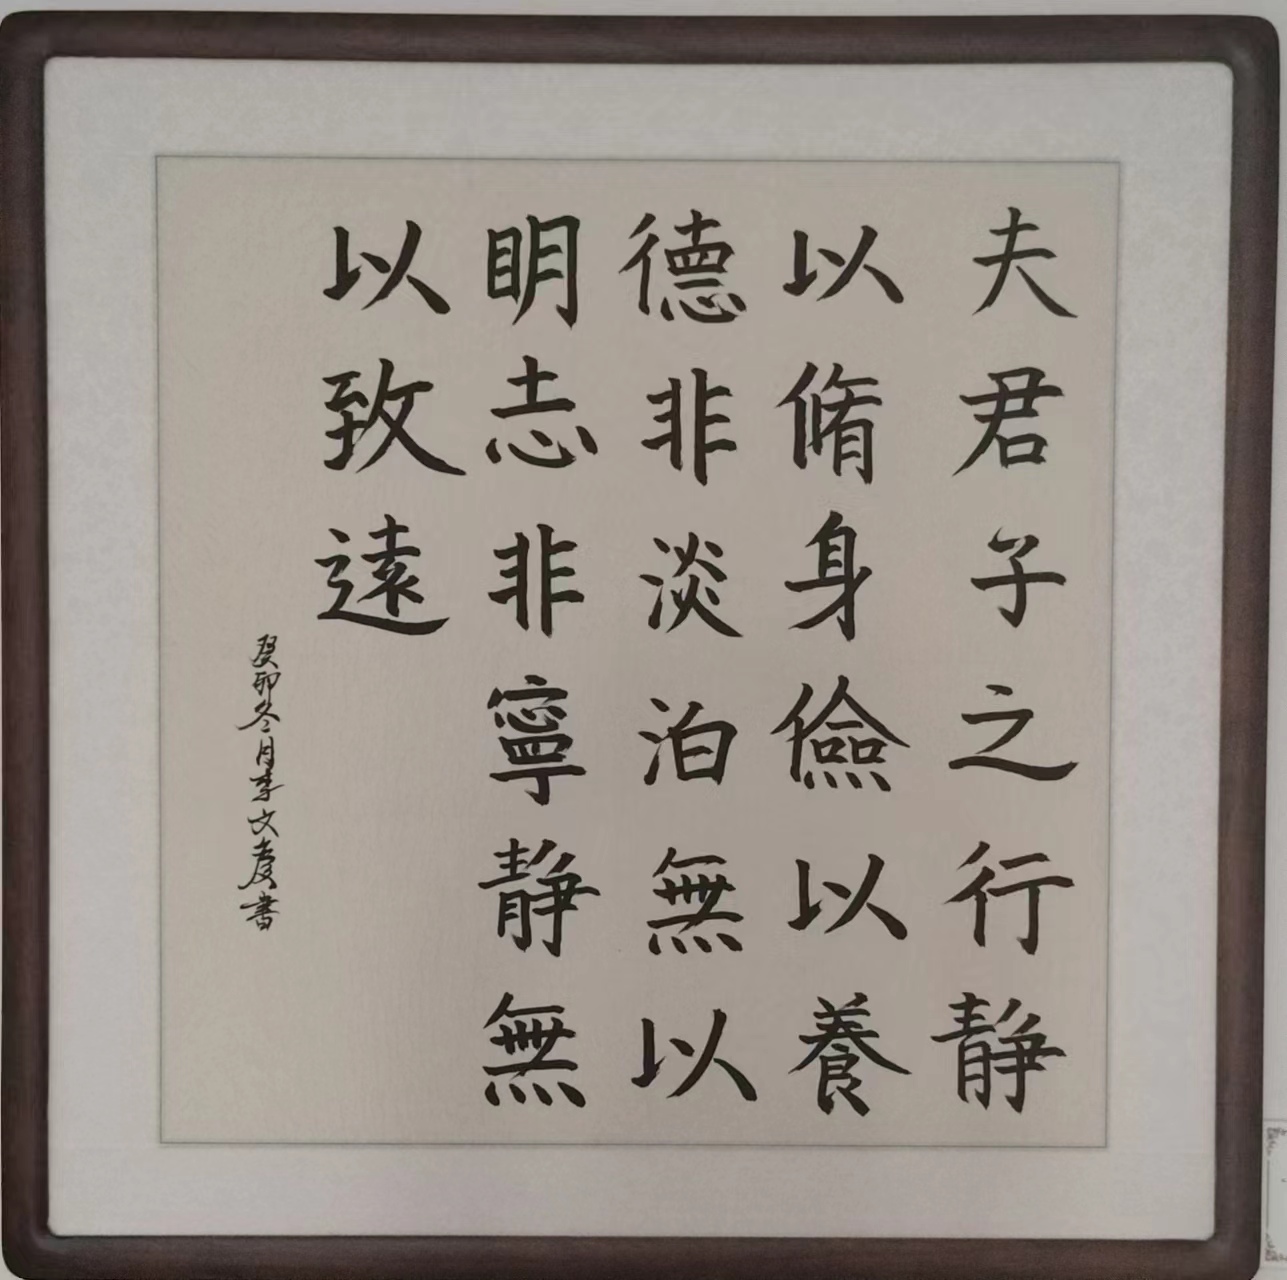 夫君子之行静
以脩身儉以養
德非淡泊無以
明志非寧静無
以致遠
癸卯冬月李文慶書